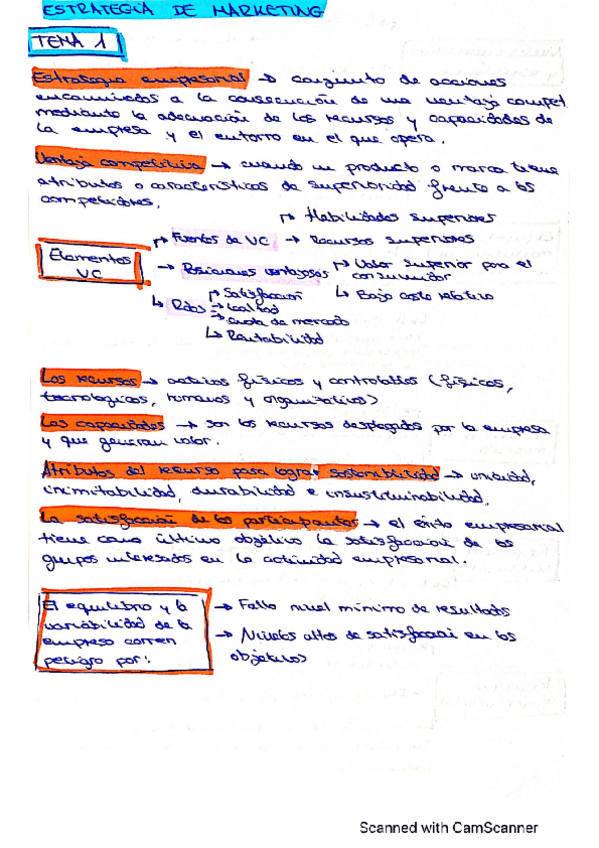 ESTRATEGIA DE MARKETING
TEMA 1
Estrategia empresarial → conjunto de acciones
encaminadas a la consecución de una ventaja compet.
mediante la adecuación de los recursos y capacidades de
la empresa y el entorno en el que opera.
Ventaja competitiva → cuando un producto o marca tiene
atributos o características de superioridad frente a los
competidores.
Elementos
VC
→ Fuentes de VC
→ Habilidades superiores
→ Recursos superiores
→ Posiciones ventajosas
→ Valor superior para el
consumidor
→ Bajo coste relativo
→ Rdos
→ Satisfacción
→ Lealtad
→ Cuota de mercado
→ Rentabilidad
Los recursos → activos físicos y controlables (físicos,
tecnológicos, humanos y organizativos)
Las capacidades → son los recursos desplegados por la empresa
y que generan valor.
Atributos del recurso para lograr sostenibilidad → unicidad,
inimitabilidad, durabilidad e insustituinabilidad.
La satisfacción de los participantes → el éxito empresarial
tiene como último objetivo la satisfacción de los
grupos interesados en la actividad empresarial.
El equilibrio y la
variabilidad de la
empresa corren
peligro por:
→ Fallo nivel mínimo de resultados
→ Niveles altos de satisfacción en los
objetivos
Scanned with CamScanner